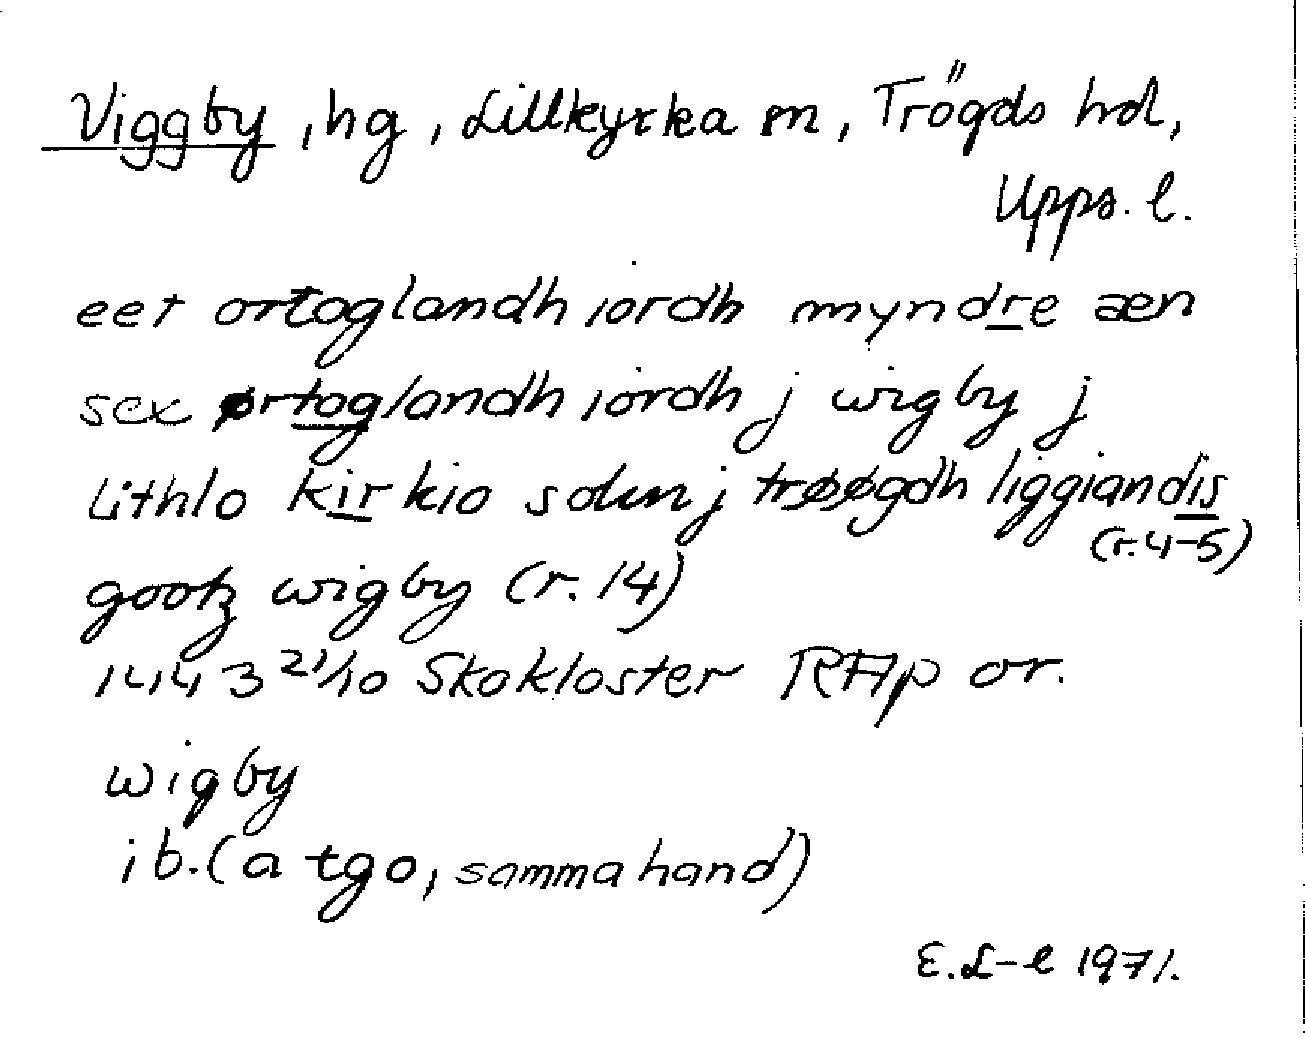 Viggby, hg, Lillkyrka sn, Trögds hd,
Upps. l.
eet ortoglandh iordh myndre æn
sex ørtoglandh iordh j wigby j
Lithlo kirkio sokn j trøøgdh liggiandis
(r. 4-5)
gootz wigby (r. 14)
1443 21/10 Skokloster RAp or.
wigby
ib. (a tgo, samma hand)
E. L-e 1971.